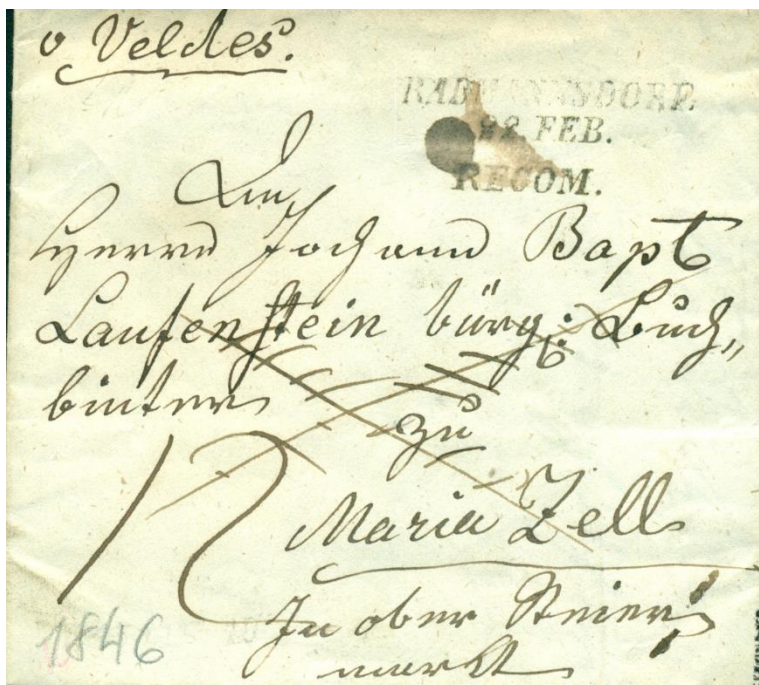 v Veldes.
RADMANNSDORF
22. FEB.
RECOM.
An
Herrn Johann Bapt
Laufenstein bürg: Buch„
binder
zu
12
Maria Zell
In ober Steier„
markt
1846